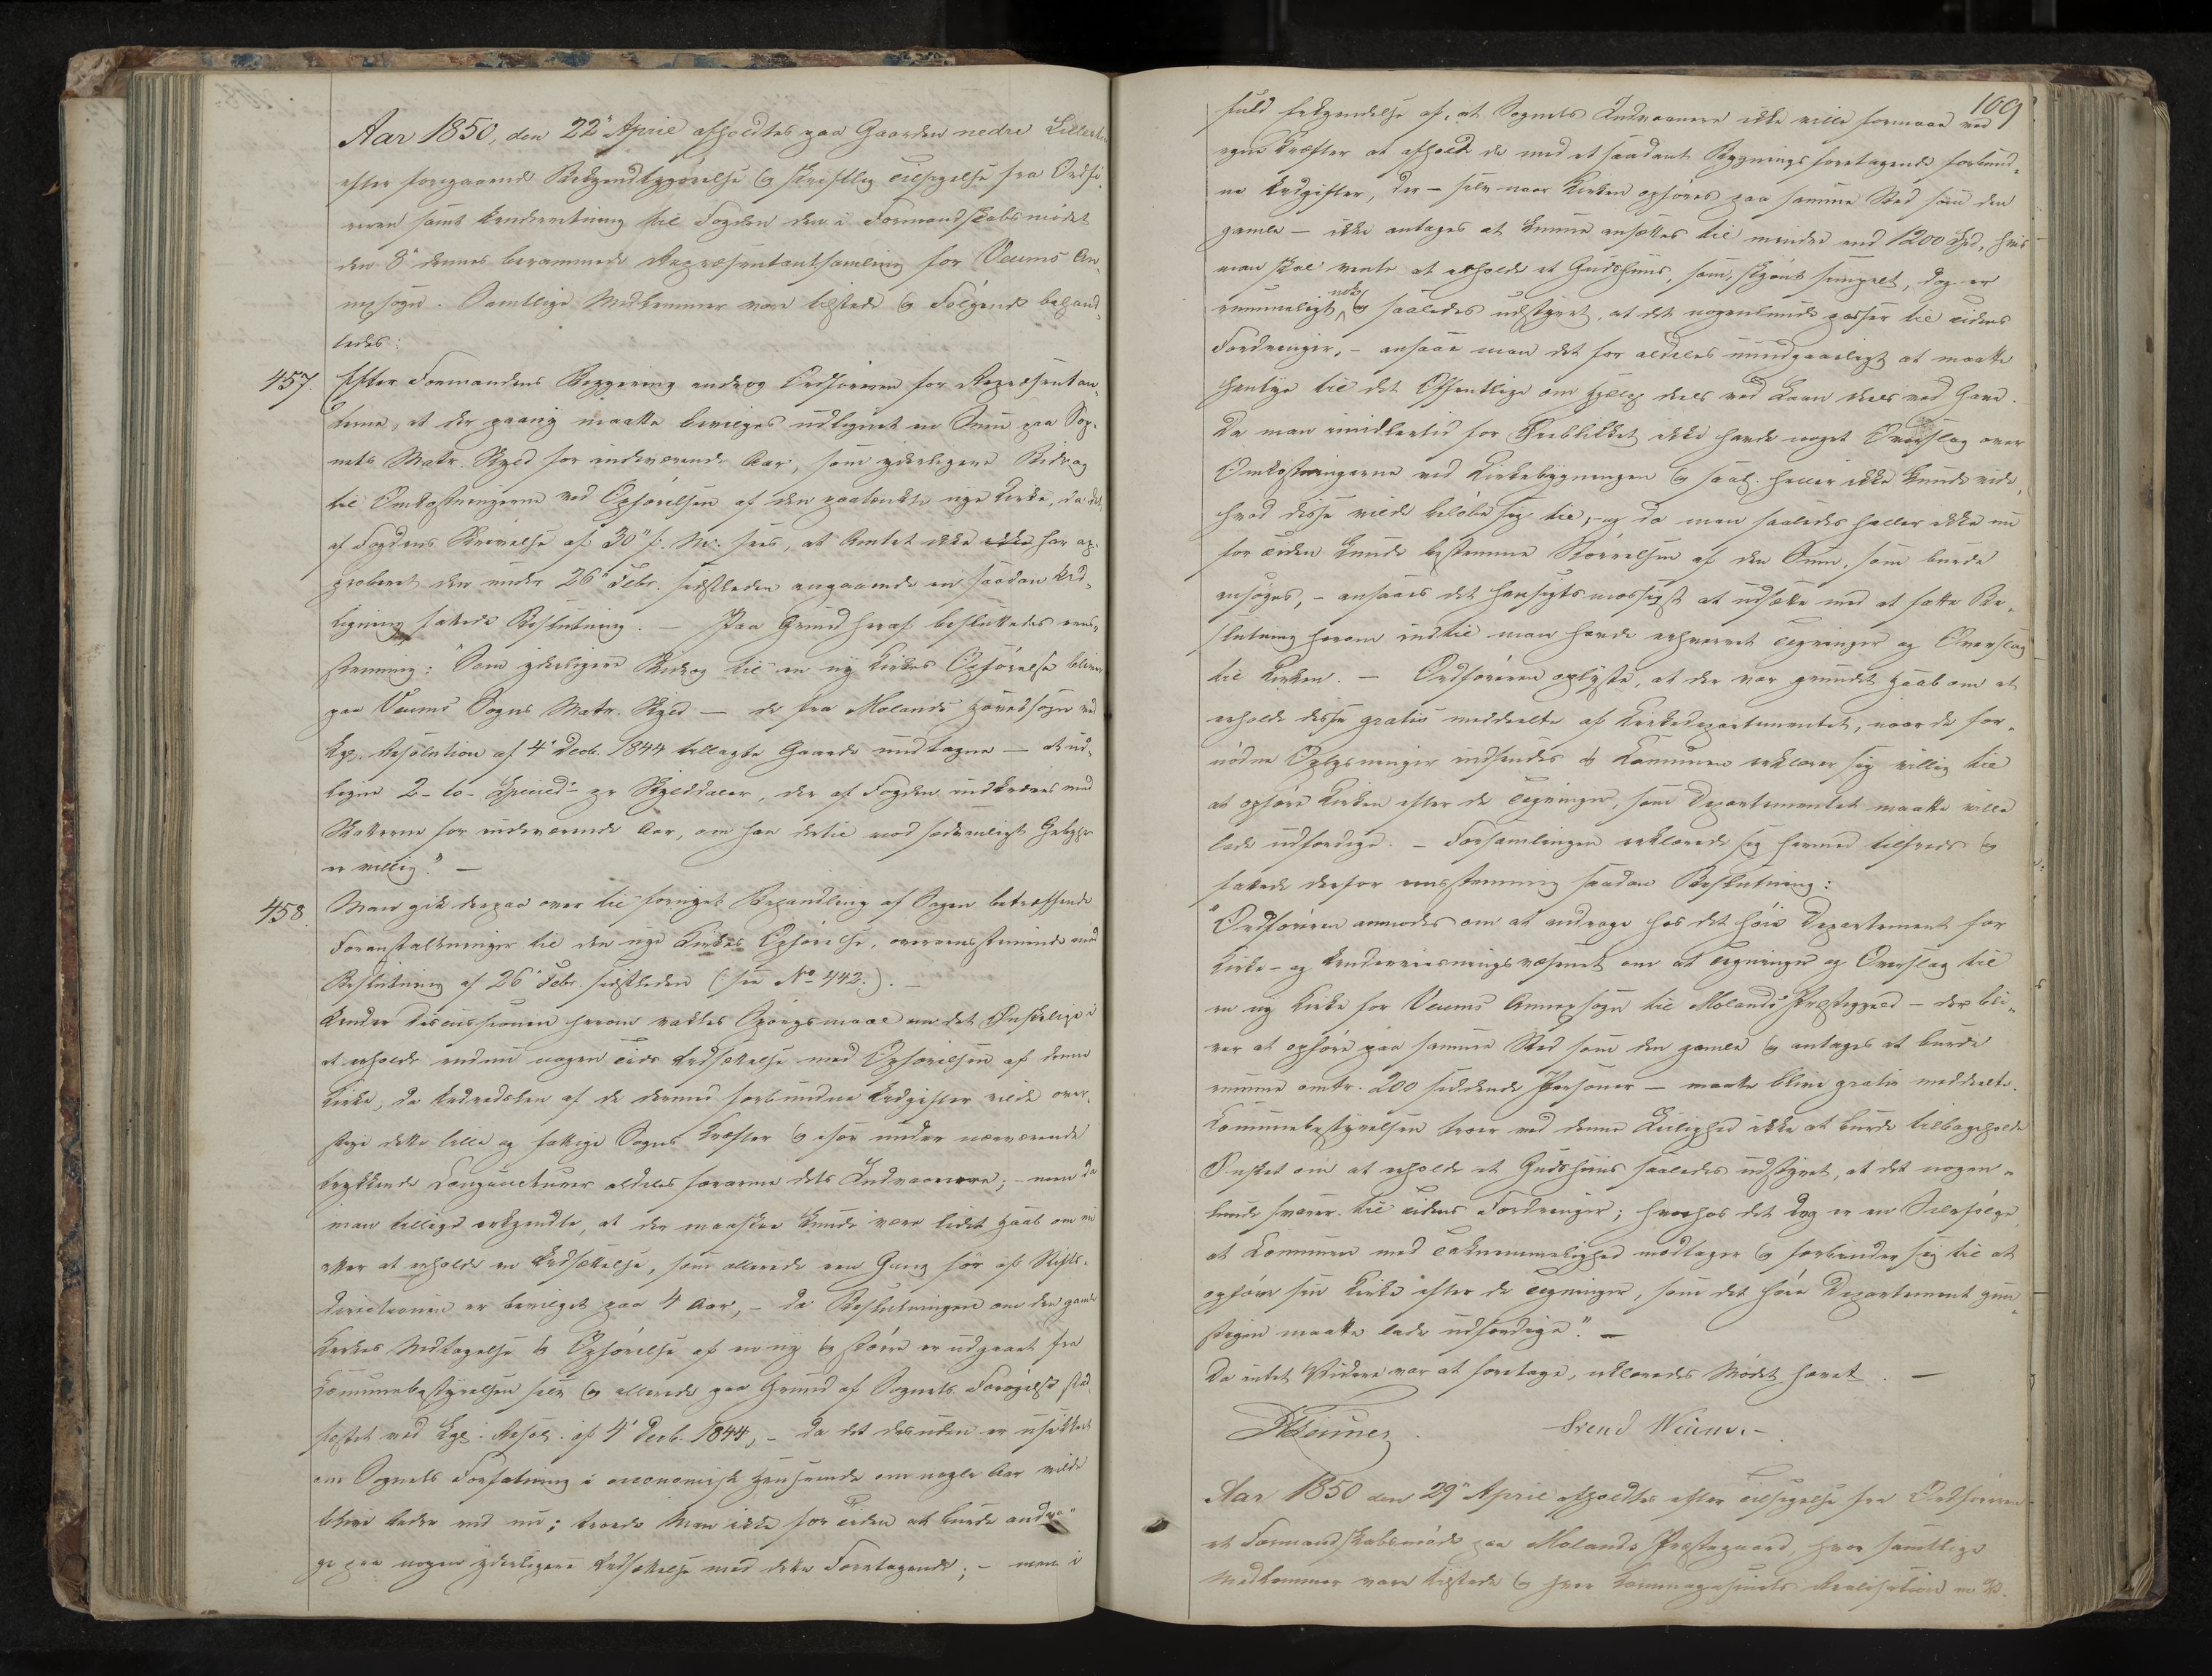 Aar 1850, den 22' April afholdtes paa Gaarden nedre
efter foregaaende Bekjendtgjørelse og skriftlig Tilsigelse fra Ordfø-
reren samt Underretning til Fogden den i Formandskabsmødet
den 8' dennes berammede Repræsentantsamling for Veums An-
nexsogn. Samtlige Medlemmer vare tilstede og Følgende behand-
ledes:
457. Efter Formandens Begjering androg Ordføreren for Repræsentan-
terne, at der paany maatte bevilges udlignet en Sum paa Sog-
nets Matr. Skyld for indeværende Aar, som yderligere Bidrag
til Omkostningerne ved Opførelsen af den paatænkte nye Kirke, da det
af Fogdens Skrivelse af 30' f. M. sees, at Amtet ikke ikke har ap-
proberet den under 26' Febr. sidstleden angaaende en saadan Ud-
ligning fattede Beslutning. — Paa Grund heraf besluttedes eens-
stemmig: "Som yderligere Bidrag til en ny Kirkes Opførelse bliver
paa Veums Sogns Matr. Skyld — de fra Molands Hovedsogn ved
Kgl. Resolution af 4' Decb. 1844 tillagte Gaarde undtagne — at ud-
ligne 2 - to - Specied. pr Skylddaler, der af Fogden indkræves med
Skatterne for indeværende Aar, om han dertil mod sædvanligt Gebyhr
er villig." —
458. Man gik derpaa over til fornyet Behandling af Sagen betræffende
Foranstaltninger til den nye Kirkes Opførelse, overeensstemmende med
Beslutning af 26' Febr. sidstleden (: see No 442:). —
Under Discussionen herom vaktes Spørgsmaal om det Ønskelige i
at erholde endnu nogen Tids Udsættelse med Opførelsen af denne
Kirke, da Udredelsen af de dermed forbundne Udgifter vilde over-
stige dette lille og fattige Sogns Kræfter og især under nærværende
trykkende Conjuncturer aldeles forarme dets Indvaanere; — men da
man tillige erkjendte, at der maaskee kunde være lidet Haab om nu
atter at erholde en Udsættelse, som allerede een Gang før af Stifts-
directionen er bevilget paa 4 Aar, — da Beslutningen om den gamle
Kirkes Nedtagelse og Opførelse af en ny og større er udgaaet fra
Communebestyrelsen selv og allerede paa Grund af Sognets Forøgelse stad-
fæstet ved Kgl. Resol. af 4' Decb. 1844, — da det desuden er usikkert
om Sognets Forfatning i oeconomisk Henseende om nogle Aar vilde
blive bedre end nu; troede Man ikke for Tiden at burde andra-
ge paa nogen yderligere Udsættelse med dette Foretagende; — men i
109
fuld Erkjendelse af, at Sognets Indvaanere ikke ville formaae ved
egne Kræfter at afholde de med et saadant Bygningsforetagende forbund-
ne Udgifter, der — selv naar Kirken opføres paa samme Sted som den
gamle — ikke antages at kunne ansættes til mindre end 1200 Spd., hvis
man skal vente at erholde et Gudshuus, som, skjønt simpelt, dog er
rummeligt nok og saaledes udstyret, at det nogenlunde passer til Tidens
Fordringer, — ansaae man det for aldeles uundgaaeligt at maatte
henty til det Offentlige om Hjælp deels ved Laan deels ved Gave.
Da man imidlertid for Øieblikket ikke havde noget Overslag over
Omkostningerne ved Kirkebygningen og saal. heller ikke kunde vide,
hvad disse vilde beløbe sig til, — og da man saaledes heller ikke nu
for Tiden kunde bestemme Størrelsen af den Sum, som burde
ansøges, — ansaaes det hensigtsmæssigst at udsætte med at fatte Be-
slutning herom indtil man havde erhvervet Tegninger og Overslag
til Kirken. — Ordføreren oplyste, at der var grundet Haab om at
erholde disse gratis meddeelte af Kirkedepartementet, naar de for-
nødne Oplysninger indsendes og Communen erklærer sig villig til
at opføre Kirken efter de Tegninger, som Departementet maatte ville
lade udfærdige. — Forsamlingen erklærede sig hermed tilfreds og
fattede derfor eensstemmig saadan Beslutning:
"Ordføreren anmodes om at andrage hos det høie Departement for
Kirke- og Underviisningsvæsenet om at Tegninger og Overslag til
en ny Kirke for Veums Annexsogn til Molands Præstegjeld — der bli-
ver at opføre paa samme Sted som den gamle og antages at burde
rumme omtr. 200 siddende Personer — maatte blive gratis meddeelte.
Communebestyrelsen troer ved denne Leilighed ikke at burde tilbageholde
Ønsket om at erholde et Gudshuus saaledes udstyret, at det nogen-
lunde svarer til Tidens Fordringer; hvorhos det dog er en Selvfølge
at Communen med Taknemmelighed modtager og forbinder sig til at
opføre sin Kirke efter de Tegninger, som det høie Departement gun-
stigen maatte lade udfærdige." —
Da intet Videre var at foretage, erklæredes Mødet hævet. —
Svend Weum. —
Aar 1850 den 29' April afholdtes efter Tilsigelse fra Ordføreren
et Formandskabsmøde paa Molands Præstegaard, hvor samtlige
Medlemmer vare tilstede og hvor Kornmagasinets Realisation